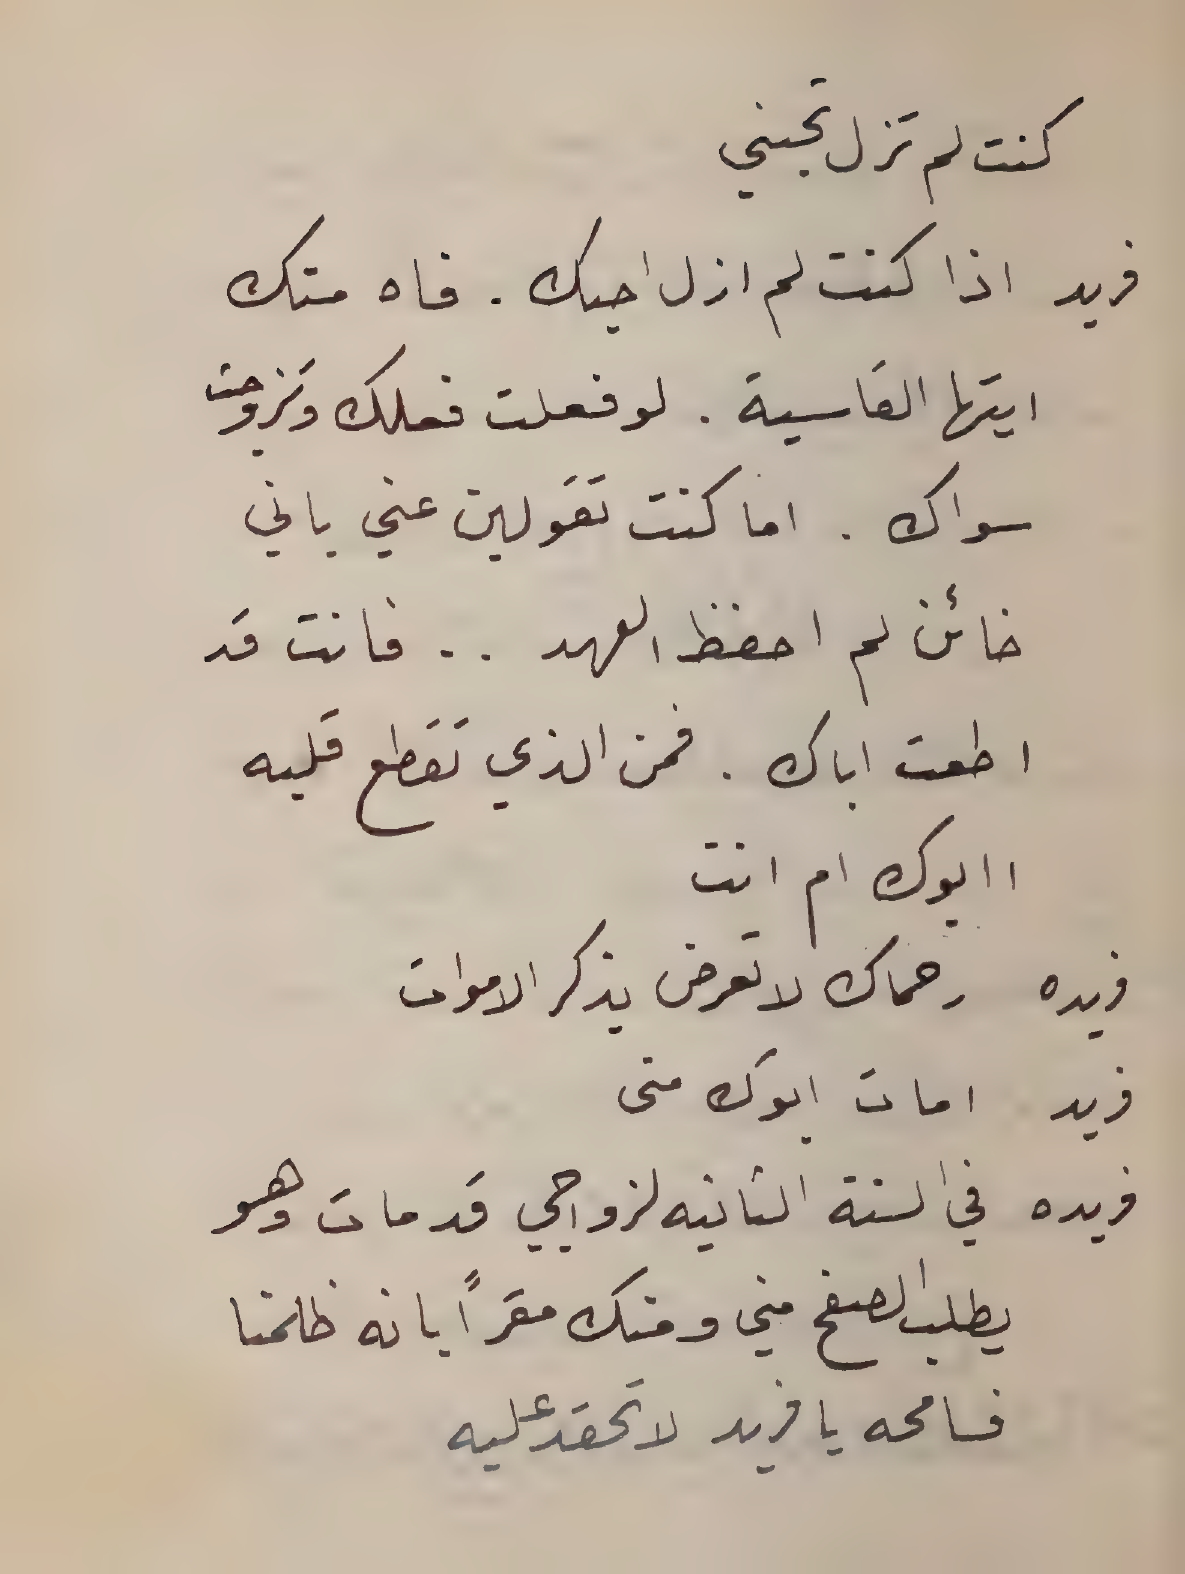 كنت لم تزل تحبني
فريد اذا كنت لم ازل احبك . فاه منك
ايتها القاسية . لو فعلت فعلك وتزوجت
سواك . اما كنت تقولين عني باني
خائن لم احفظ العهد . . فانت قد
اطعت اباك . فمن الذي تقطع قلبه
اابوك ام انت
فريده رحماك لا تعرض بذكر الاموات
فريد امات ابوك متى
فريده في السنة الثانيه لزواجي قد مات وهو
يطلب الصفح مني ومنك مقراً بانه ظلمنا
فسامحه يا فريد لا تحقد عليه